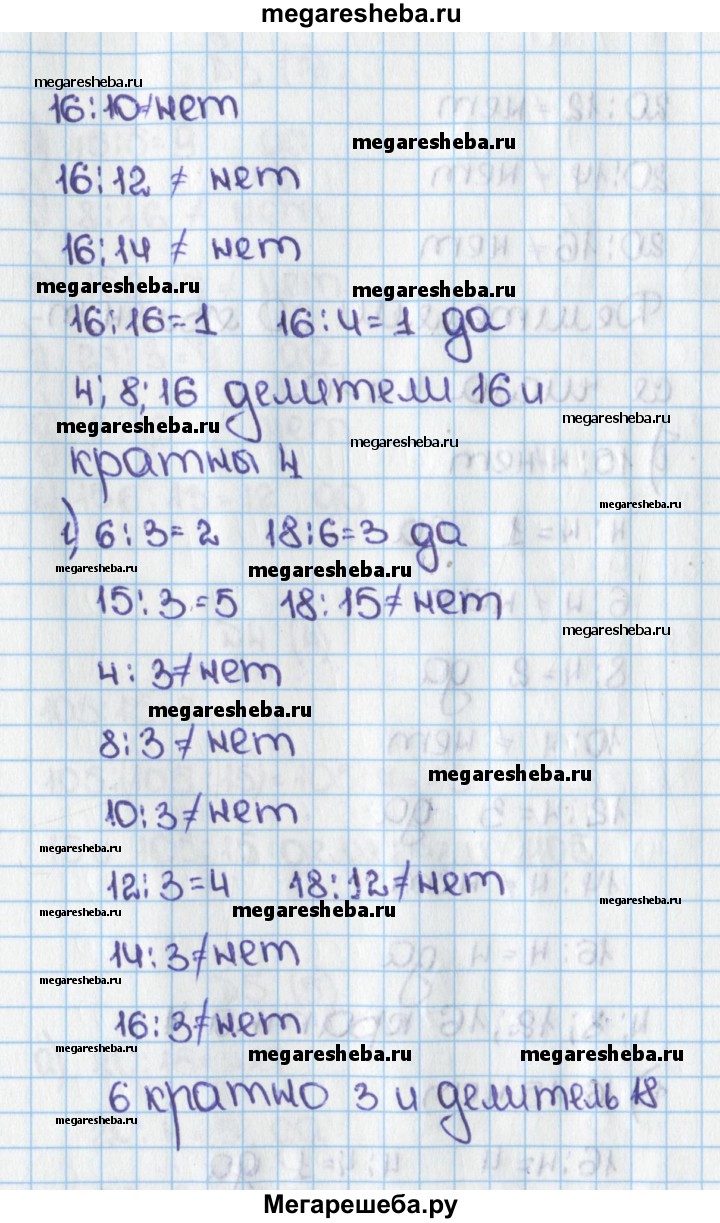 megaresheba.ru
megaresheba.ru
16:10≠нет
megaresheba.ru
16:12 ≠ нет
16:14 ≠ нет
megaresheba.ru megaresheba.ru
16:16=1 16:4=1 да
4; 8; 16 делители 16 и
megaresheba.ru megaresheba.ru
megaresheba.ru
кратны 4
megaresheba.ru
1) 6:3=2 18:6=3 да
megaresheba.ru megaresheba.ru
15:3=5 18:15≠нет
megaresheba.ru
4:3≠нет
megaresheba.ru
8:3≠нет
megaresheba.ru
10:3≠нет
megaresheba.ru
12:3=4 18:12≠нет
megaresheba.ru megaresheba.ru
14:3≠нет
megaresheba.ru
16:3≠нет
megaresheba.ru megaresheba.ru megaresheba.ru
6 кратно 3 и делитель 18
megaresheba.ru
Мегарешеба.ру